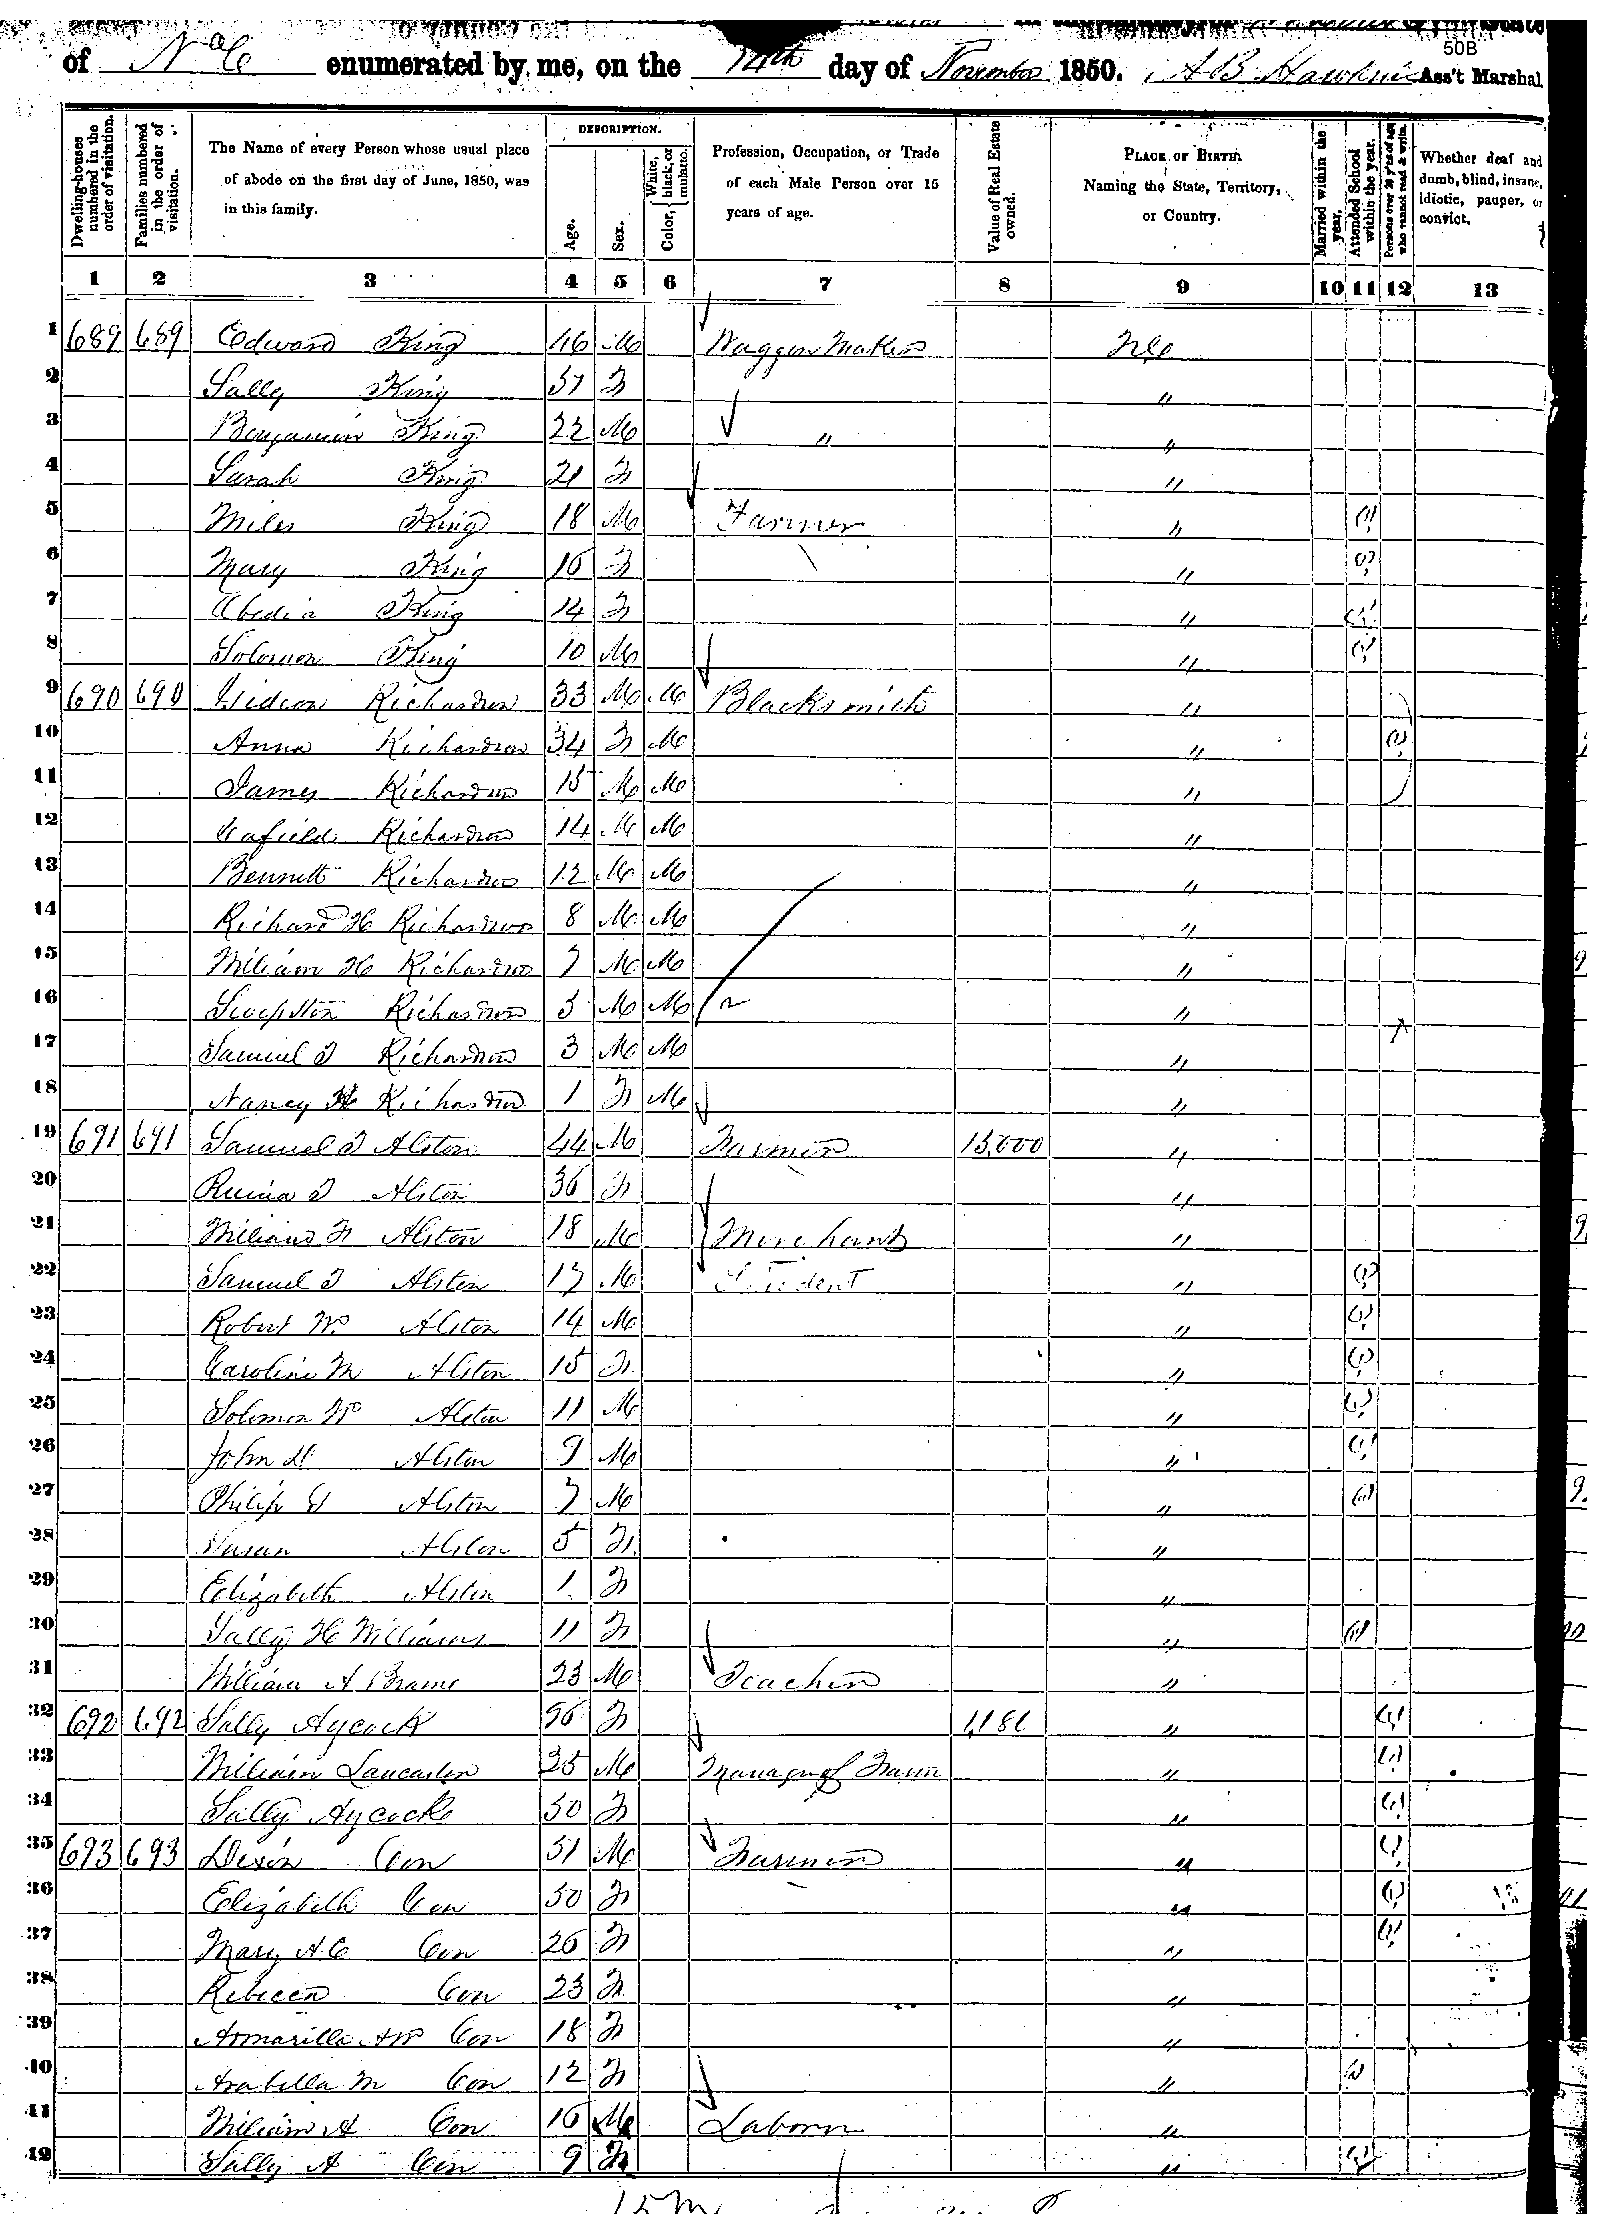 of Na Ca enumerated by me, on the 14th day of November 1850. A B Hawkins Ass't Marshal.
50B
Dwelling-houses numbered in the order of visitation.
Families numbered in the order of visitation.
The Name of every Person whose usual place of abode on the first day of June, 1850, was in this family.
DESCRIPTION.
Age.
Sex.
Color, White, black, or mulatto.
Profession, Occupation, or Trade of each Male Person over 15 years of age.
Value of Real Estate owned.
PLACE OF BIRTH. Naming the State, Territory, or Country.
Married within the year.
Attended School within the year.
Persons over 20 y'rs of age who cannot read & write.
Whether deaf and dumb, blind, insane, idiotic, pauper, or convict.
1 2 3 4 5 6 7 8 9 10 11 12 13
1 689 689 Edward King 46 M Waggon Maker NCa
2 Sally King 57 F "
3 Benjamin King 22 M " "
4 Sarah King 21 F "
5 Miles King 18 M Farmer " (1)
6 Mary King 16 F " (1)
7 King 14 F " (1)
8 Solomon King 10 M " (1)
9 690 690 Gideon Richardson 33 M M Blacksmith "
10 Anna Richardson 34 F M "
11 James Richardson 15 M M "
12 Richardson 14 M M "
13 Bennett Richardson 12 M M "
14 Richard H Richardson 8 M M "
15 William H Richardson 7 M M "
16 Richardson 5 M M "
17 Samuel T Richardson 3 M M "
18 Nancy H Richardson 1 F M "
19 691 691 Samuel T Alston 44 M Farmer 15,000 "
20 Ruina T Alston 36 F "
21 William F Alston 18 M Merchant "
22 Samuel T Alston 17 M Student " (1)
23 Robert W Alston 14 M " (1)
24 Caroline M Alston 15 F " (1)
25 Solomon W Alston 11 M " (1)
26 John D Alston 9 M " (1)
27 Philip G Alston 7 M " (1)
28 Susan Alston 5 F "
29 Elizabeth Alston 1 F "
30 Sally H Williams 11 F " (1)
31 William A Brame 23 M Teacher "
32 692 692 Sally Aycock 56 F " (1)
33 William Lancaster 25 M Manager of Farm " (1)
34 Sally Aycock 50 F " (1)
35 693 693 Dixon Con 51 M Farmer " (1)
36 Elizabeth Con 50 F " (1)
37 Mary A C Con 26 F " (1)
38 Rebecca Con 23 F "
39 Armarilla AW Con 18 F "
40 Arabella M Con 12 F " (1)
41 William A Con 16 M Laborer "
42 Sally A Con 9 F " (1)
15 M